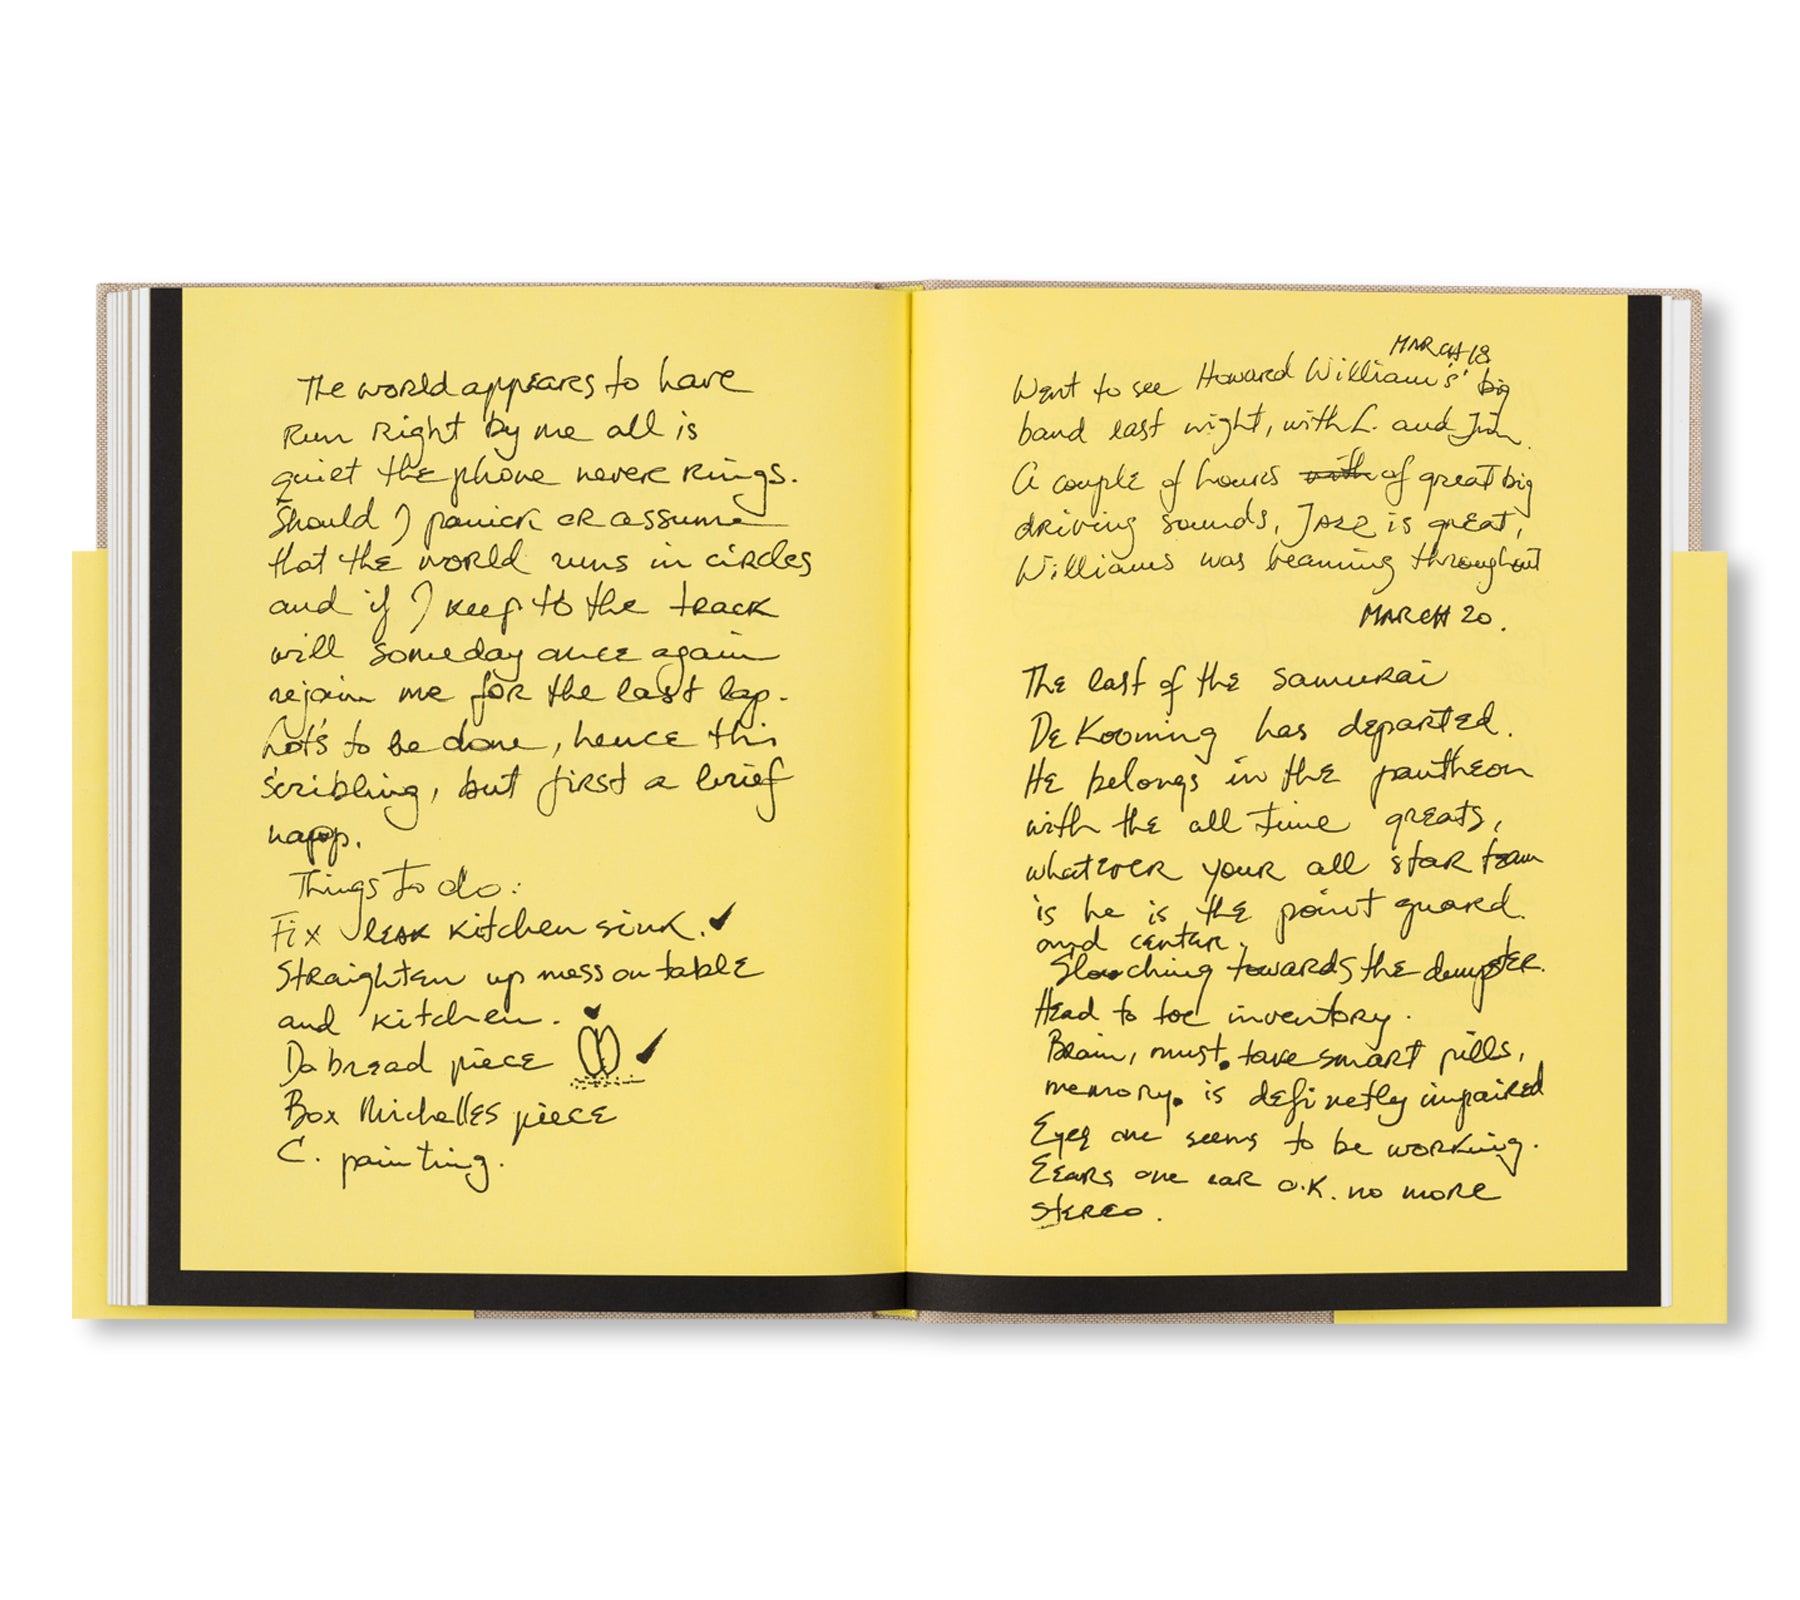 The world appears to have
run right by me all is
quiet the phone never rings.
Should I panick or assume
that the world runs in circles
and if I keep to the track
will someday once again
rejoin me for the last lap.
Lot's to be done, hence this
scribbling, but first a brief
napp.
Things to do:
Fix leak kitchen sink. ✓
Straighten up mess on table
and kitchen. ✓
Do bread piece ✓
Box Michelles piece
C. painting.
MARCH 18
Went to see Howard William's' big
band last night, with L. and Jim.
A couple of hours with of great big
driving sounds, Jazz is great,
Williams was beaming throughout
MARCH 20.
The last of the samurai
De Kooning has departed.
He belongs in the pantheon
with the all time greats,
whatever your all star team
is he is the point guard.
and center.
Slouching towards the dumpster.
Head to toe inventory.
Brain, must. take smart pills,
memory. is definetly impaired
Eyes one seems to be working.
Eears one ear o.k. no more
stereo.